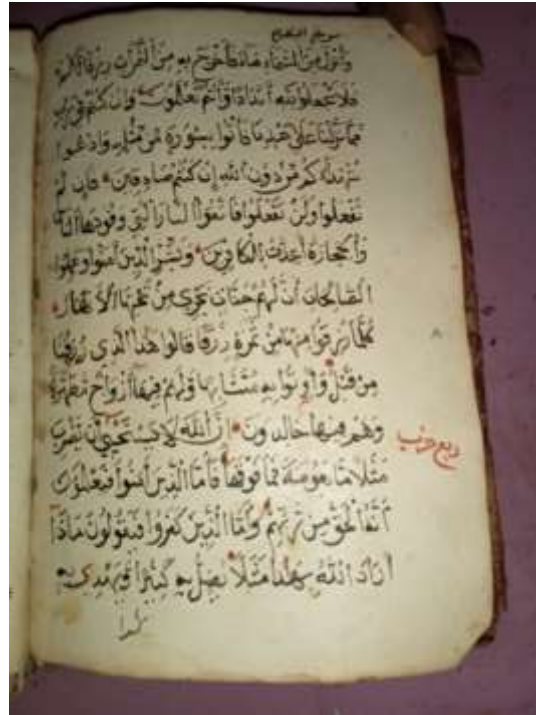 وأنزل من السماء ماء فأخرج به من الثمرات رزقا لكم
فلا تجعلوا لله أندادا وأنتم تعلمون وإن كنتم في ريب
مما نزلنا على عبدنا فأتوا بسورة من مثله وادعوا
شهداءكم من دون الله إن كنتم صادقين فإن لم
تفعلوا ولن تفعلوا فاتقوا النار التي وقودها الناس
والحجارة أعدت للكافرين وبشر الذين آمنوا وعملوا
الصالحات أن لهم جنات تجري من تحتها الأنهار
كلما رزقوا منها من ثمرة رزقا قالوا هذا الذي رزقنا
من قبل وأوتوا به متشابها ولهم فيها أزواج مطهرة
وهم فيها خالدون إن الله لا يستحيي أن يضرب
ربع حزب
مثلا ما بعوضة فما فوقها فأما الذين آمنوا فيعلمون
أنه الحق من ربهم وأما الذين كفروا فيقولون ماذا
أراد الله بهذا مثلا يضل به كثيرا ويهدي به
كثيرا